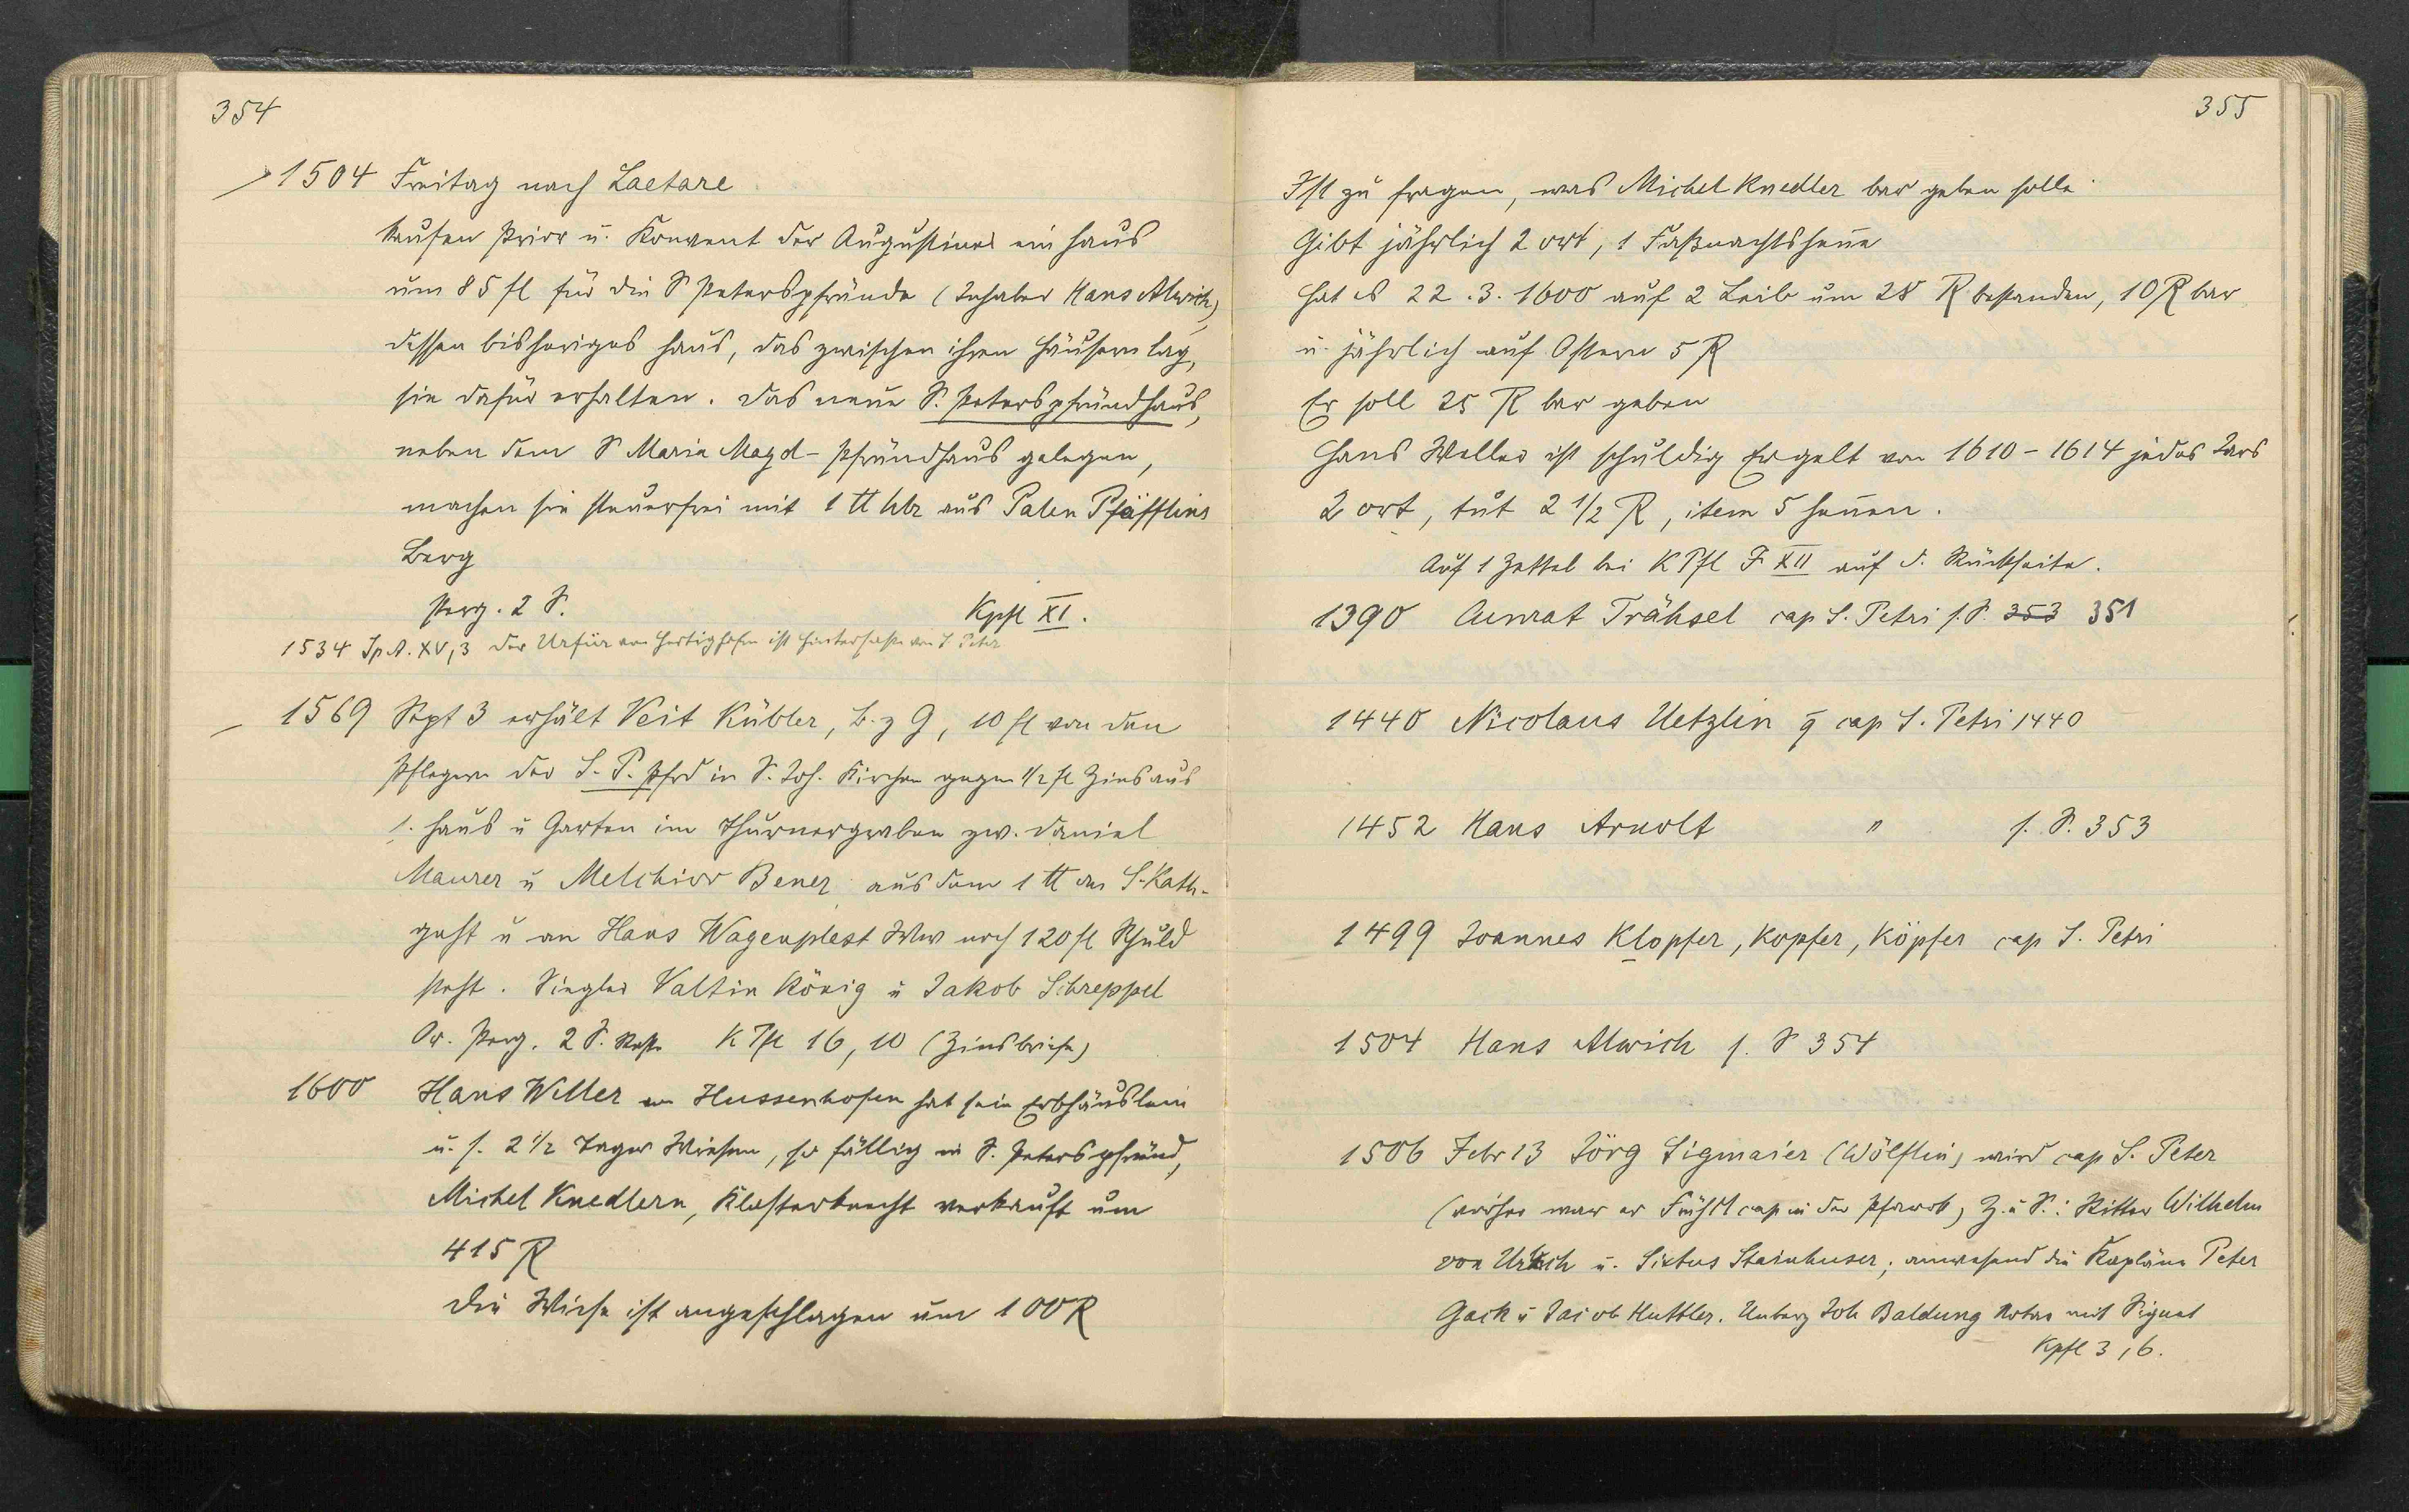 354
1504 Freitag nach Laetare
kaufen Prior u. Konvent der Augustiner ein Haus
um 85 fl für die S Peterspfründe (Inhaber Hans Alwich)
dessen bisheriges Haus, das zwischen ihren Häusern lag,
sie dafür erhalten. Das neue S. Peterspfründhaus,
neben dem S Maria Magd-Pfründhaus gelegen,
machen sie steuerfrei mit 1 tt hlr aus Pfäfflins
Berg
Perg. 2 S. Kpfl XI.
1534 Sp A. XV, 3 Der von ist Hintersasse von S Peter
1569 Sept 3 erhält Veit Kübler, B. z G, 10 fl von den
Pflegern der S. P. Pfrd in S. Joh. Kirchen gegen 1/2 fl Zins aus
s. Haus u Garten im Thürnergraben zw. Daniel
Maurer u Melchior Bener, aus dem 1 tt an S. Kath-
geht u an Hans Wagenplest Ww noch 120 fl Schuld
steht. Siegler Valtin König u Jakob Schreppel
Or. Perg. 2 S. Reste K Pfl 16, 10 (Zinsbriefe)
1600 Hans Willer Hussenhofen hat sein Erbhäuslein
u. s. 2 1/2 Tagw Wiesen, so fällig in S. Peterspfründ,
Michel Knedlern, Klosterknecht verkauft um
415 R
Die Wiese ist angeschlagen um 100 R
355
Ist zu fragen, was Michel Knedler bar geben solle
Gibt jährlich 2 ort, 1 Faßnachtshenne
Hat es 22.3.1600 auf 2 Leib um 28 R bestanden, 10 R bar
u. jährlich auf Ostern 5 R
Er soll 25 R bar geben
Hans Weller ist schuldig Ergelt von 1610-1614 jedes Jars
2 ort, tut 2 1/2 R, item 5 hennen.
Auf 1 Zettel bei K Pfl F XII auf d. Rückseite.
1390 Cunrat Trähsel cap S. Petri s. S. 353 351
1440 Nicolaus Uetzlin cap S. Petri 1440
1452 Hans Arnolt " s. S. 353
1499 Joannes Klopfer, Kopfer, Köpfer cap S. Petri
1504 Hans Alwich s. S 354
1506 Febr 13 Jörg Sigmaier (Wölflin) wird cap S. Peter
(vorher war er Frühm cap in der Pfarrk) Z. u S.: Ritter Wilhelm
von Urbach u. Sixtus Stainhuser; anwesend die Kapläne Peter
Gack u Jacob Huttler. Unberg Joh Baldung Notar mit Signet
Kpfl 3, 6.